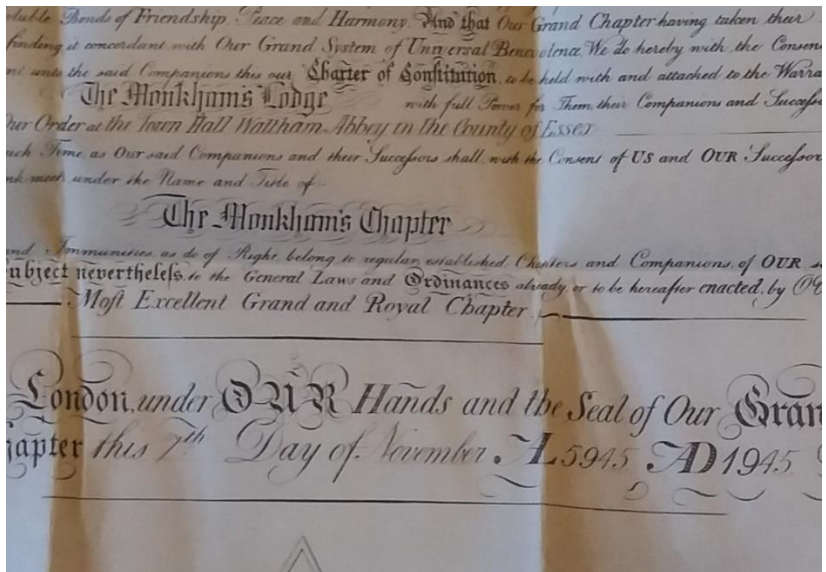 Bonds of Friendship, Peace and Harmony. And that Our Grand Chapter having taken their
finding it concordant with Our Grand System of Universal Benevolence, We do hereby with the Consen
unto the said Companions this our Charter of Constitution, to be held with and attached to the Warra
The Monkham's Lodge with full Power for Them, their Companions and Successo
Our Order at the Town Hall Waltham Abbey in the County of Essex
uch Time as Our said Companions and their Successors shall, with the Consent of US and OUR Successor
meet, under the Name and Title of
The Monkham's Chapter
and Immunities, as do of Right, belong to regular, established Chapters and Companions, of OUR
subject nevertheless, to the General Laws and Ordinances already, or to be hereafter enacted, by
Most Excellent Grand and Royal Chapter.
London, under OUR Hands and the Seal of Our Gran
hapter this 7th Day of November AL 5945 AD 1945